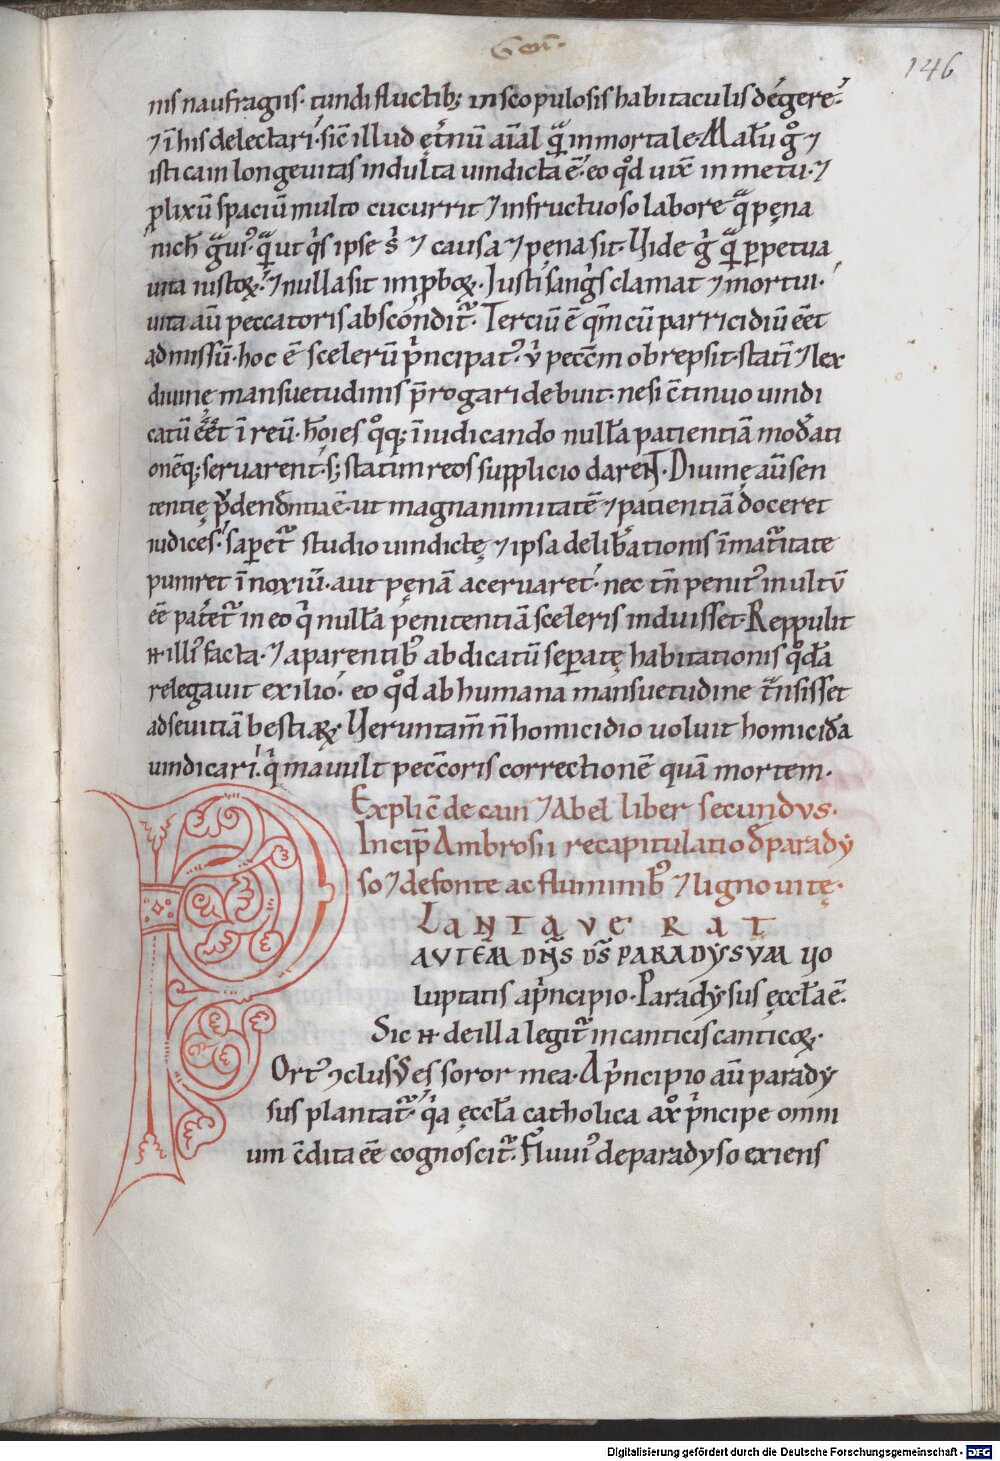 Gen̄.
146
nis naufragiis· tundi fluctib;; in scopulosis habitaculis degere·
⁊ ī his delectari· sic̄ illud ęt̄nū aīal quā inmortale· Malū g° ⁊
isti cain longeuitas indulta uindicta ē· eo qd̊ uixit in metu· ⁊
plixū spaciū multo cucurrit ⁊ infructuoso labore qa pęna
nich̄ gui᾿· quā ut q̇s ipse s; ⁊ causa ⁊ pęna sit· Vide g̊ quā ppetua
uita iustoꝝ· ⁊ nulla sit imp̱boꝝ· Justi sanġs clamat ⁊ mortui·
uita aū peccatoris abscondit᷑· Terciū ē qm̄ cū parricidiū eēt
admissū· hoc ē scelerū p̄ncipat᾿· ū pecc̄m obrepsit· statī ⁊ lex
diuinę mansuetudinis p̄rogari debuit· nesi c̄tinuo uindi
catū eēt ī reū· hōies q°q; ī iudicando nullā patientiā mod̄ati
onēq; seruarent· s; statim reos supplicio darent· Diuinę aū sen
tentię p̄dend̄ntia ē· ut magnanimitatē ⁊ patientiā doceret
iudices· sapet᷑ studio uindictę ⁊ ipsa delib̄ationis īmat᷑itate
puniret īnoxiū· aut pęnā aceruaret· nec tn̄ penit᾿ inultū
eē patet᷑ in eo q̇ nullā penitentiā sceleris induisset· Reppulit
n̄ illū facta· ⁊ a parentib᾿ abdicatū separatę habitationis qd̊ā
relegauit exilio· eo qd̊ ab humana mansuetudine t᷑nsisset
ad seuitiā bestiaꝝ· Veruntam̄ n̄ homicidio uoluit homicidā
uindicari· q̇ mauult pecc̄oris correctionē quā mortem·
Explic̄ de cain ⁊ Abel liber secundus·
Incip̄ Ambrosii recapitulatio d̄ parady
so ⁊ de fonte ac fluminib᾿ ⁊ ligno uitę·
PLANTAVERAT
AVTEM DN̄S DS̄ PARADYSVM uo
luptatis a p̄ncipio· Paradysus ęccl̄a ē·
Sic n̄ de illa legit᷑ in canticis canticoꝝ·
Ort᾿ ꝯclusus es soror mea· A p̄ncipio aū parady
sus plantat᷑· q̇a ęccl̄a catholica a xp̊ p̄ncipe omni
um c̄dita eē cognoscit᷑· Fluui᾿ de paradyso exiens
Digitalisierung gefördert durch die Deutsche Forschungsgemeinschaft - DFG